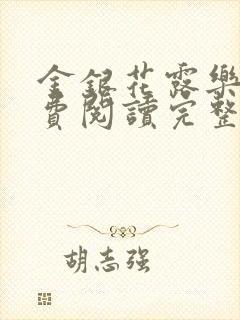 金銀花露樂
費閱讀完整
胡志强